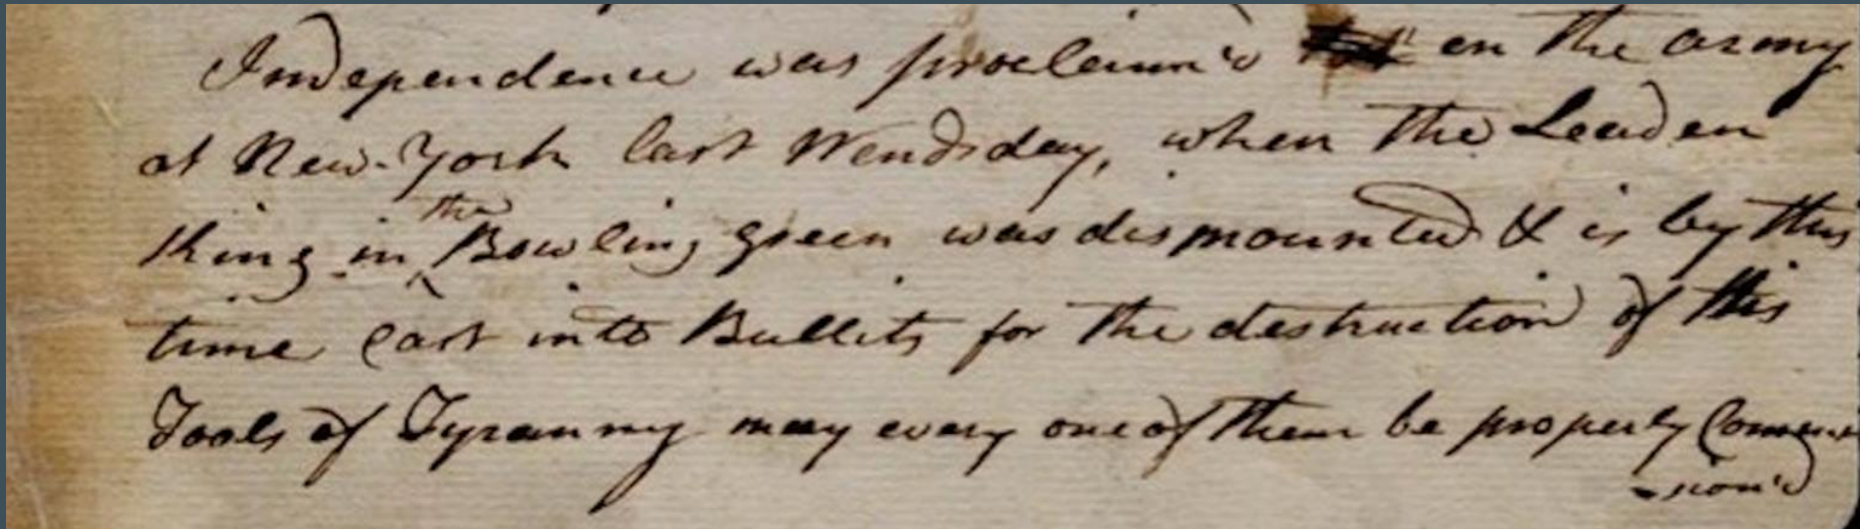 Independence was proclaim'd in the army
at New-York last Wendsday, when the Leaden
King in the Bowling green was dismounted & is by this
time Cast into Bullits for the destruction of this
Tools of Tyranny may every one of them be properly Commis
-sion'd